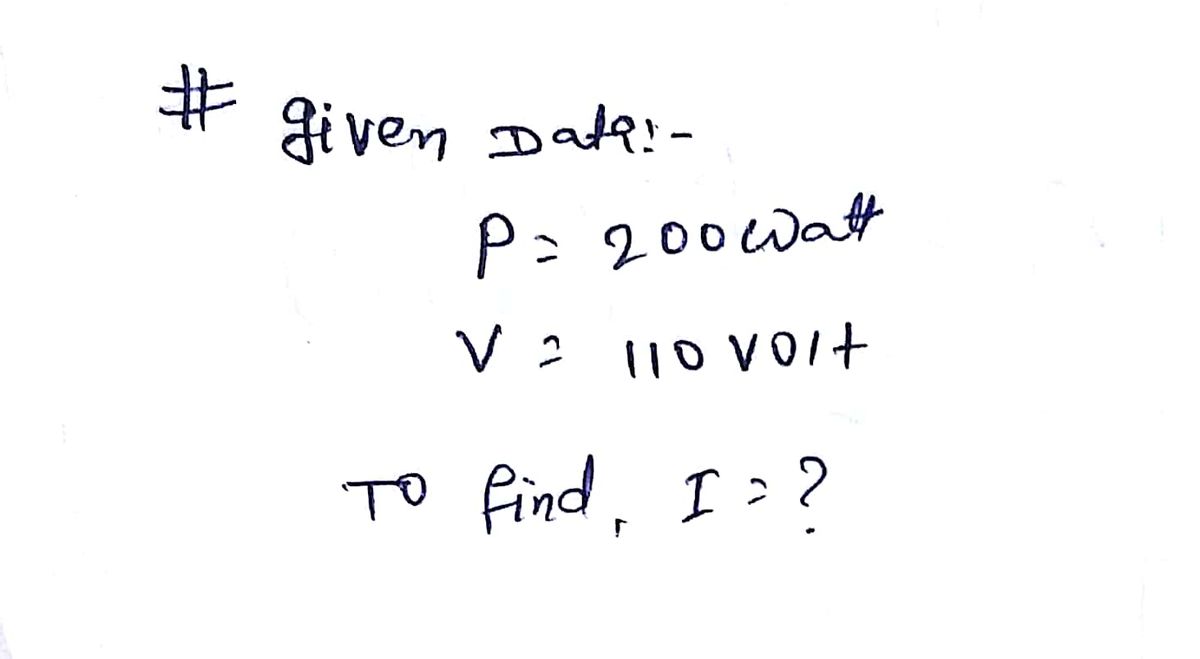 # given Data:-
P = 200 watt
V = 110 volt
To find, I = ?